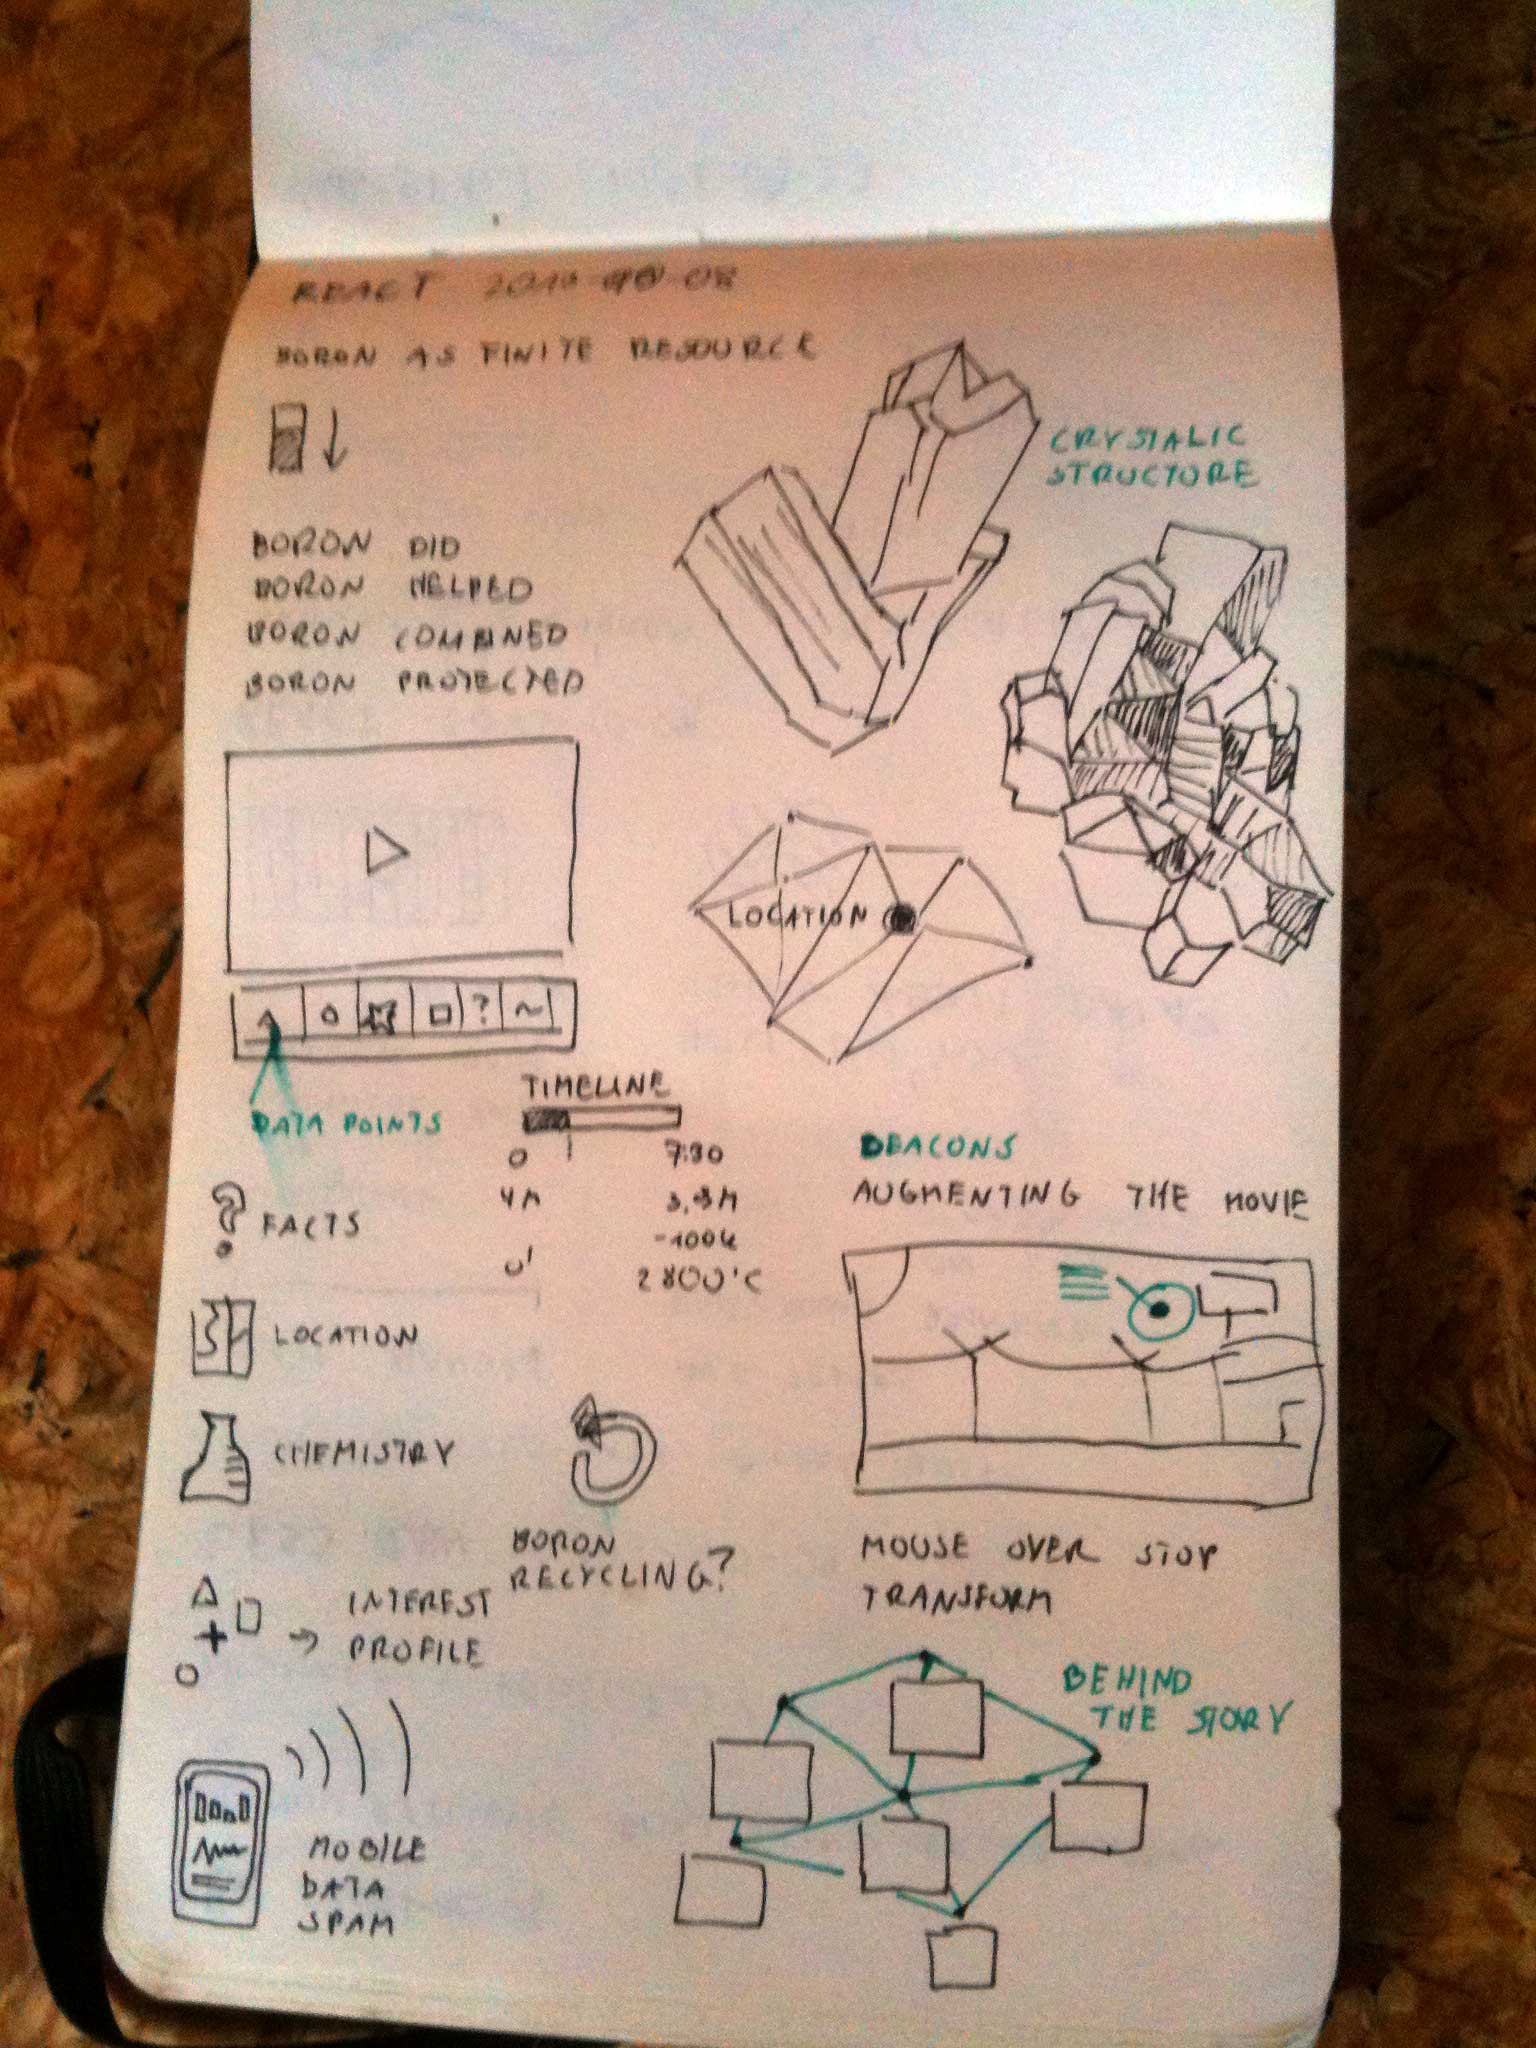 REACT
BORON AS FINITE RESOURCE
CRYSTALIC
STRUCTURE
BORON DID
BORON HELPED
BORON COMBINED
BORON PROTECTED
LOCATION
?
TIMELINE
DATA POINTS
0 7:30
4M
-100k
0' 2800°C
BEACONS
AUGMENTING THE MOVIE
? FACTS
LOCATION
CHEMISTRY
BORON
RECYCLING?
MOUSE OVER STOP
TRANSFORM
INTEREST
PROFILE
BEHIND
THE STORY
MOBILE
DATA
SPAM